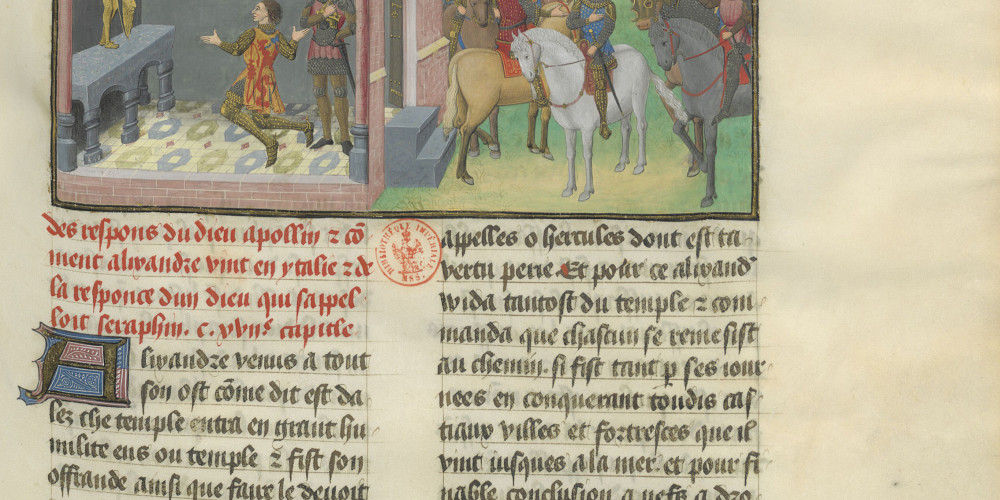 des respons du dieu apollin ⁊ cō
ment alixandre vint en ytalie ⁊ de
la responce dun dieu qui sappel
loit seraphin. c. xviiᵉ capitle
Alixandre venus a tout
son ost cōme dit est da
lez che temple entra en grant hu
milite ens ou temple ⁊ fist son
offrande ainsi que faire le devoit
appelles o hercules dont est ta
vertu perie. Et pour ce alixand
wida tantost du temple ⁊ com
manda que chascun se remesist
au chemin. si fist tant p ses iour
nees en conquerant toudis cas
tiaux villes et fortresces que il
vint iusques a la mer. et pour fi
nable conclusion a nefs a dro
BIBLIOTHÈQUE IMPÉRIALE
MSS.